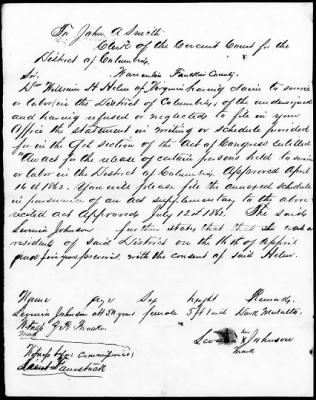 To John A Smith
Clerk of the Circuit Court for the
District of Columbia,
Sir. Warrenton Fauquier County.
Dr William H Helm of Virginia having claim to service
or labor in the District of Columbia, of the undersigned
and having refused or neglected to file in your
Office the statement in writing or schedule provided
for in the 9th section of the Act of Congress entitled
"An act for the release of certain persons held to service
or labor in the District of Columbia, Approved April
16th 1862. You will please file the annexed schedule
in pursuance of an act supplementary to the above
recited act Approved July 12th 1862. The said
Johnson further states that she was a
resident of said District on the 16th of April
and previous, with the consent of said Helm.
Name Age Sex height Remarks.
Johnson female Dark Mulatto
Witness
Johnson
mark